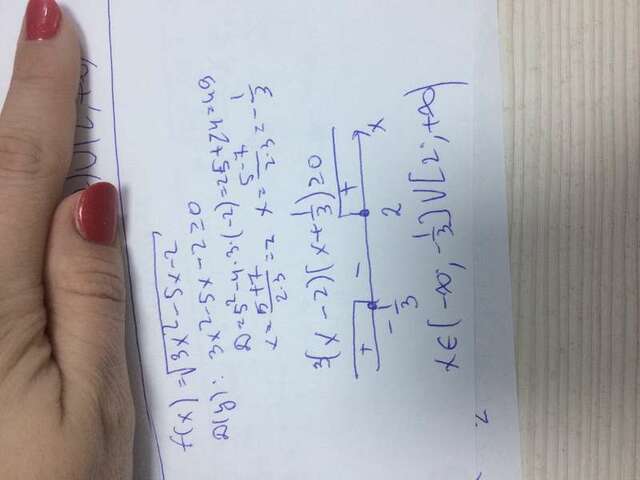 )U(2; +∞)
f(x) = √3x² - 5x - 2
D(y): 3x² - 5x - 2 ≥ 0
D = 5² - 4 · 3 · (-2) = 25 + 24 = 49
x = 5+7/2·3 = 2 x = 5-7/2·3 = -1/3
3(x - 2)(x + 1/3) ≥ 0
+ - +
-1/3 2 x
x ∈ (-∞; -1/3] U [2; +∞)